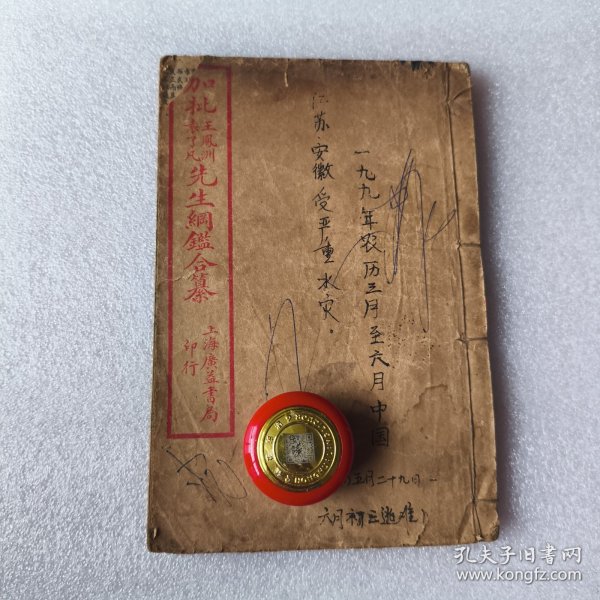 加批王鳳洲袁了凡先生綱鑑合纂
上海廣益書局
印行
一九九一年农历三月至六月中国
江苏、安徽受严重水灾。
五月二十九日--
六月初三逃难)
孔夫子旧书网
www.kongfz.com